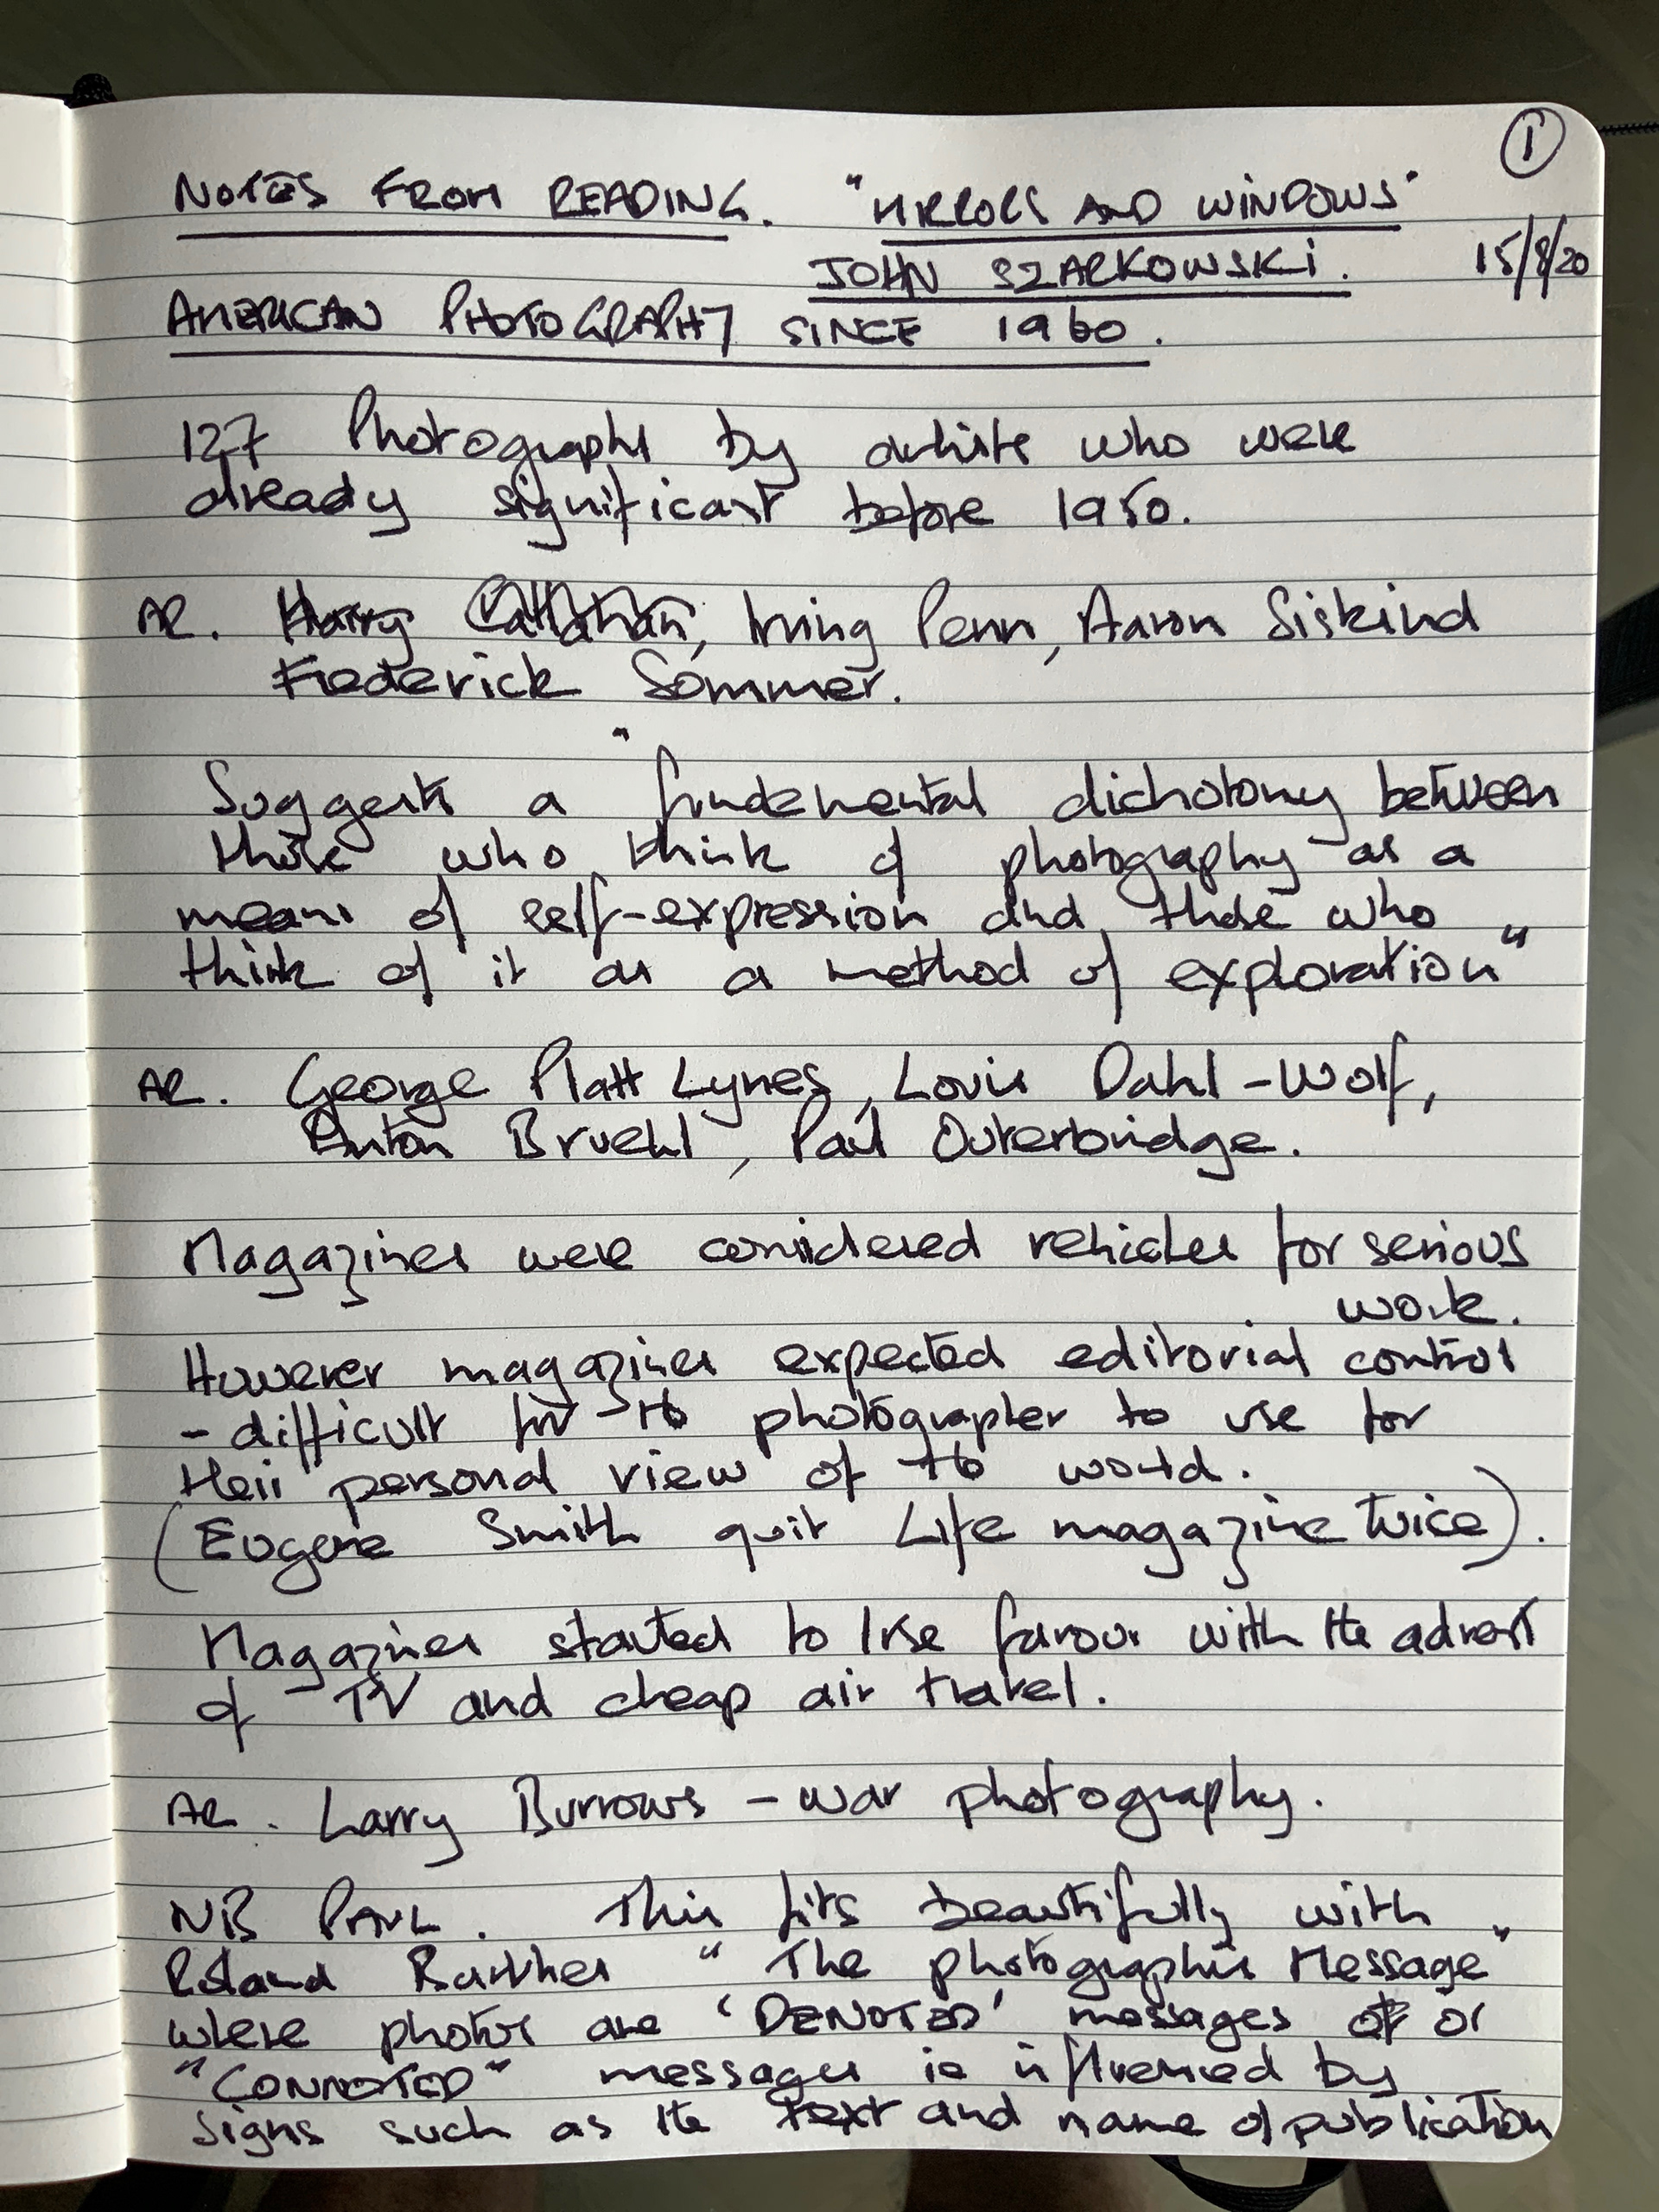 ①
NOTES FROM READING. "MIRRORS AND WINDOWS"
JOHN SZARKOWSKI. 15/8/20
AMERICAN PHOTOGRAPHY SINCE 1960.
127 Photographs by artists who were
already significant before 1950.
AR. Harry Callahan, Irving Penn, Aaron Siskind
Frederick Sommer.
Suggests a "fundemental dichotomy between
those who think of photography as a
means of self-expression and those who
think of it as a method of exploration"
AR. George Platt Lynes, Louis Dahl-Wolf,
Anton Bruehl, Paul Outerbridge.
Magazines were considered vehicles for serious
work.
However magazines expected editorial control
- difficult for the photographer to use for
their personal view of the world.
(Eugene Smith quit Life magazine twice).
Magazines started to lose favour with the advent
of TV and cheap air travel.
AR. Larry Burrows - war photography.
NB PAUL. This fits beautifully with
Roland Barthes "The photographic Message"
where photos are 'DENOTED' messages or
"CONNOTED" messages ie influenced by
signs such as the text and name of publication